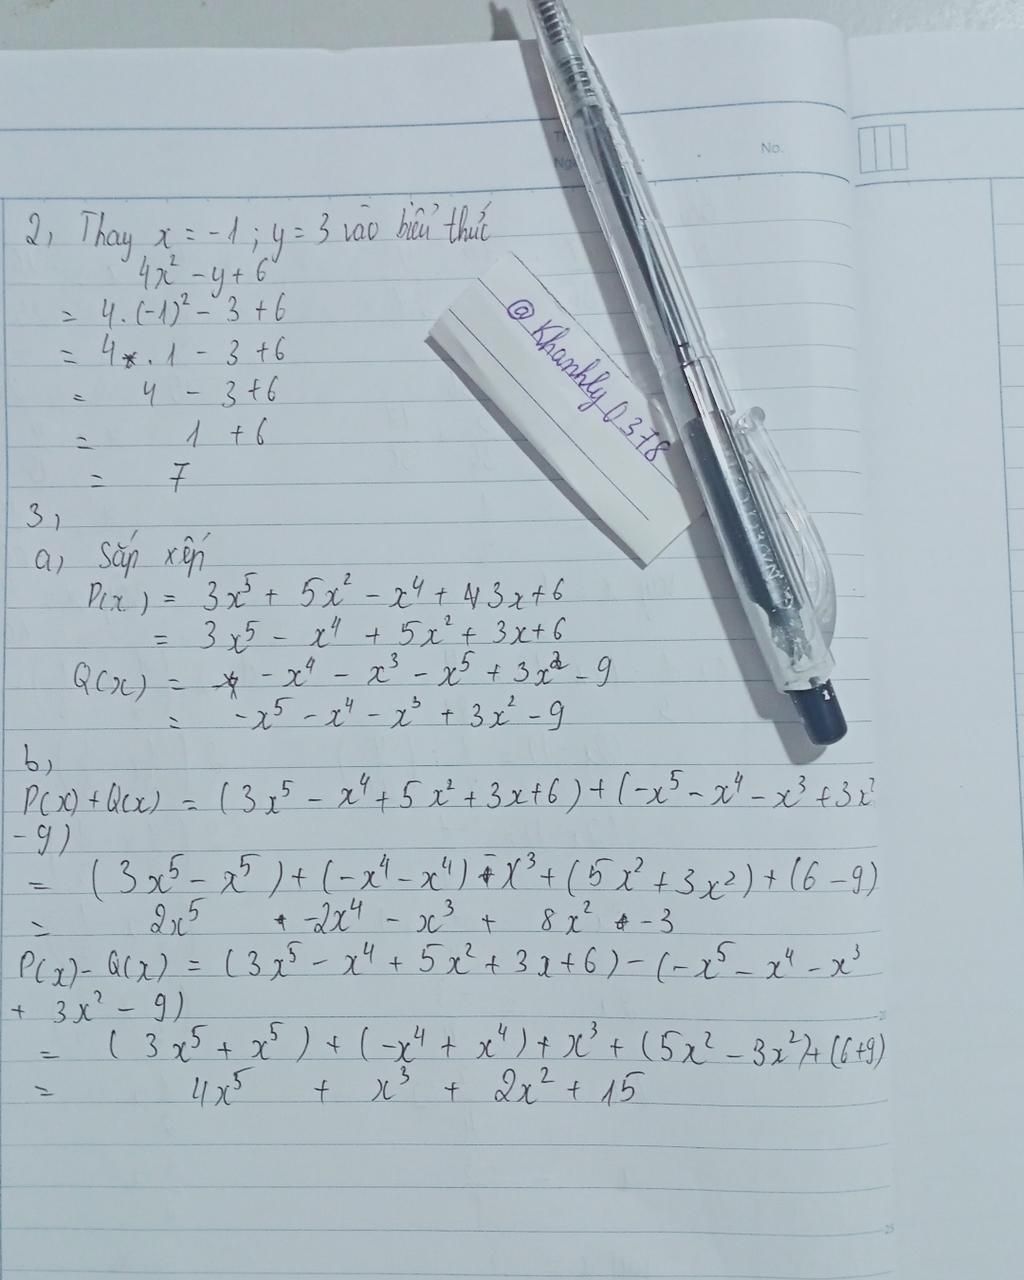 No.
2, Thay x = -1 ; y = 3 vào biểu thức
4x² - y + 6
= 4.(-1)² - 3 + 6
= 4 . 1 - 3 + 6
= 4 - 3 + 6
= 1 + 6
= 7
@Khanhly0378
3,
a, Sắp xếp
P(x) = 3x⁵ + 5x² - x⁴ + 3x + 6
= 3x⁵ - x⁴ + 5x² + 3x + 6
Q(x) = - x⁴ - x³ - x⁵ + 3x² - 9
= -x⁵ - x⁴ - x³ + 3x² - 9
b,
P(x) + Q(x) = (3x⁵ - x⁴ + 5x² + 3x + 6) + (-x⁵ - x⁴ - x³ + 3x²
- 9)
= (3x⁵ - x⁵) + (-x⁴ - x⁴) - x³ + (5x² + 3x²) + (6 - 9)
= 2x⁵ -2x⁴ - x³ + 8x² - 3
P(x) - Q(x) = (3x⁵ - x⁴ + 5x² + 3x + 6) - (-x⁵ - x⁴ - x³
+ 3x² - 9)
= (3x⁵ + x⁵) + (-x⁴ + x⁴) + x³ + (5x² - 3x²) + (6+9)
= 4x⁵ + x³ + 2x² + 15
25